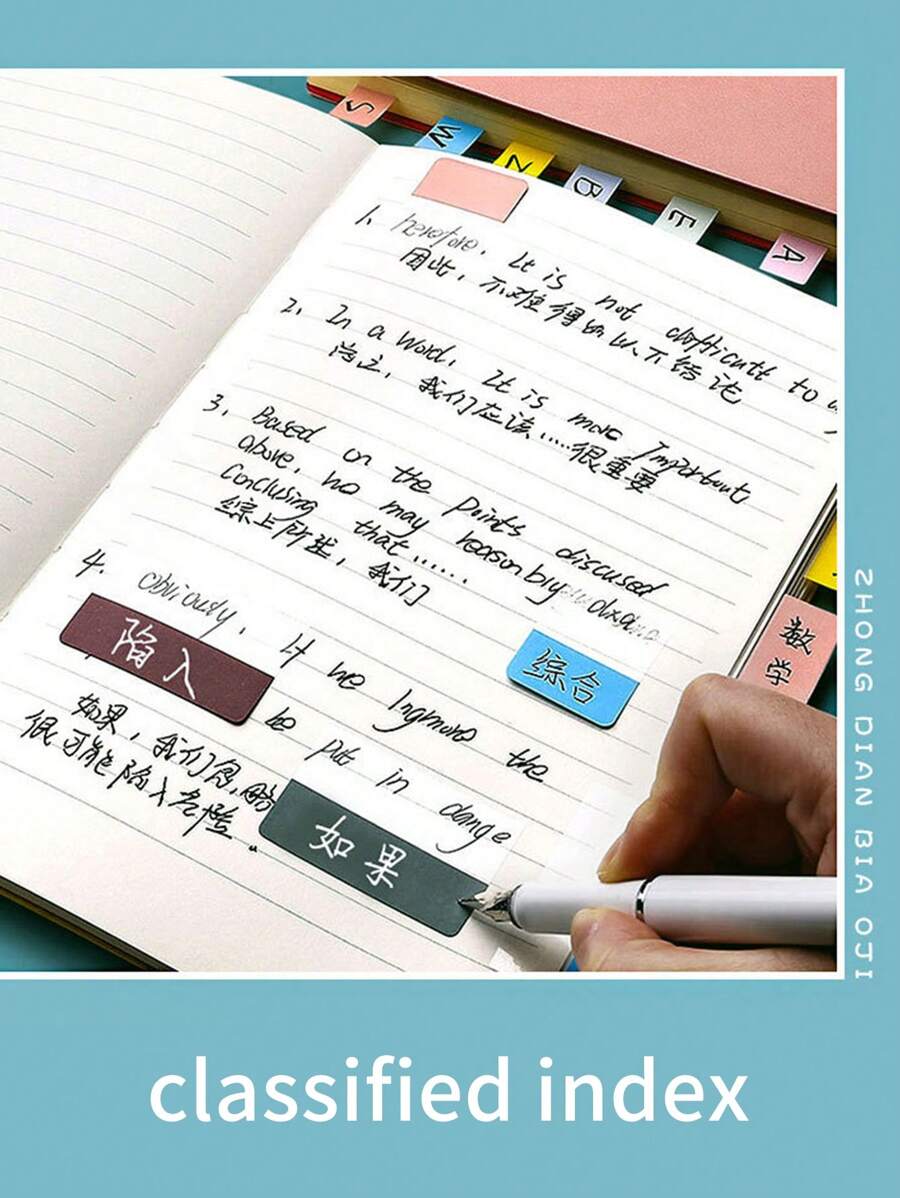 S
W
Z
B
E
A
1. herefore, It is not difficult to
因此,不难得出以下结论
2. In a word, It is more Important
总之,我们应该.....很重要
3. Based on the Points discussed
above, we may reasonbly
Conclusing that......
综上所述,我们
4. obviously, If we Ingnore the
陷入
综合
数学
be put in dange
如果,我们忽略
很可能陷入危险。
如果
ZHONG DIAN BIA OJI
classified index